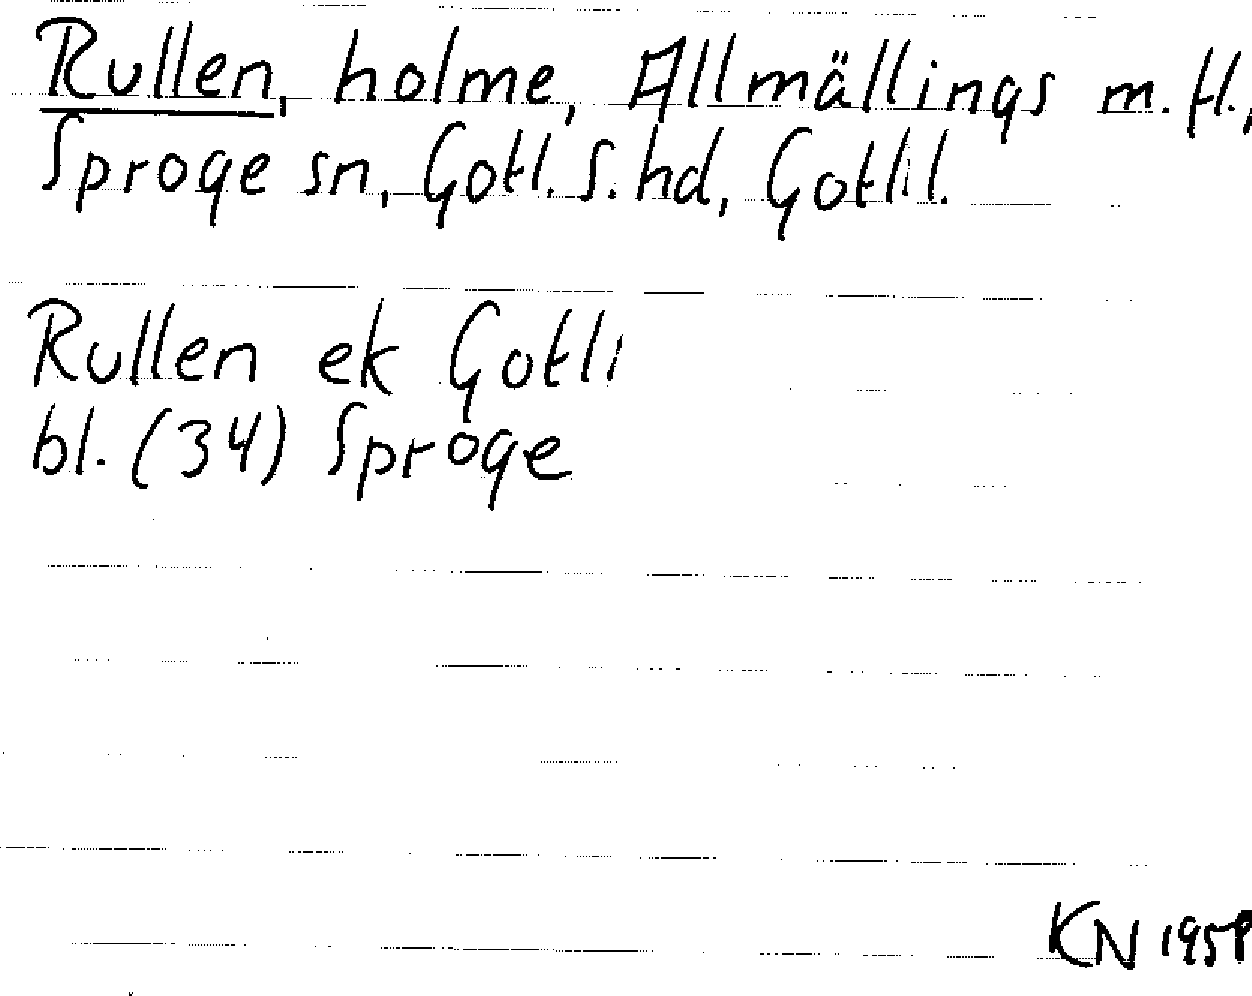 Rullen, holme, Allmällings m.fl.,
Sproge sn, Gotl. S. hd, Gotll.
Rullen ek Gotll
bl. (34) Sproge
KN 1958